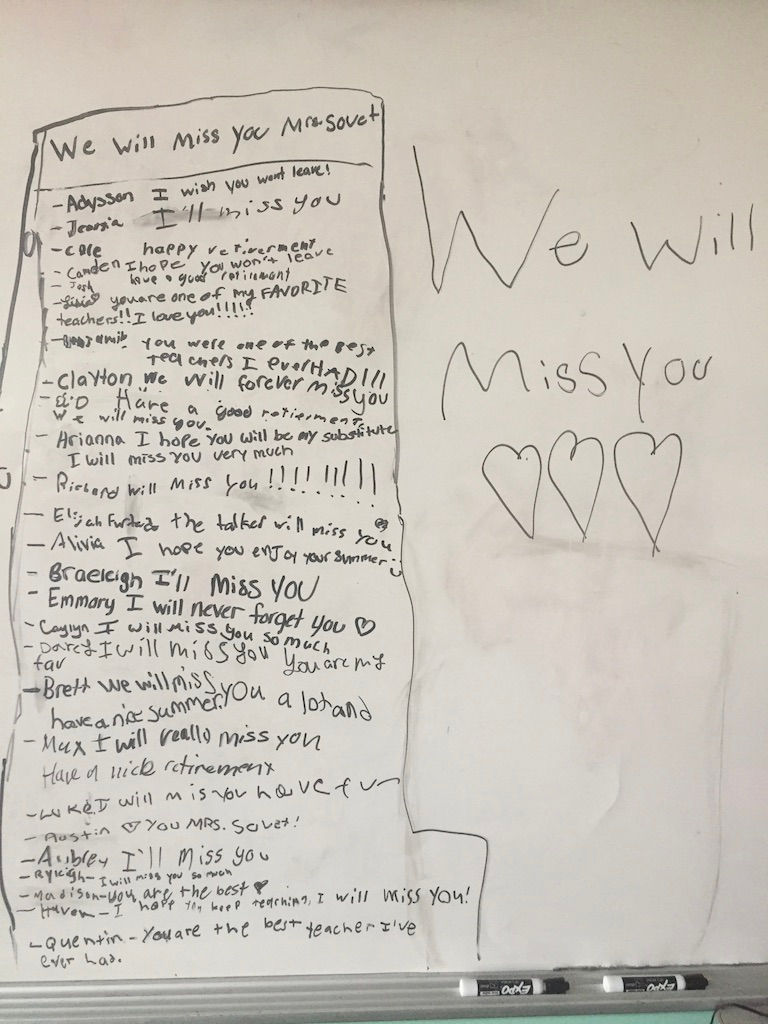 We Will Miss You Mrs. Sovet
- Adysson I wish you wont leave!
- I'll miss you
- Cole happy retirerment
- Camden I hope you won't leave
- Josh have a good retirement
- you are one of my FAVORITE
teachers!! I love you!!!!!
- you were one of the best
teachers I ever HAD!!!
- Clayton we will forever miss you
- Have a good retirement,
We will miss you.
- Arianna I hope you will be my substitute
I will miss you very much
- Richard will miss you !!!!!!!!!
- Elijah the talker will miss you
- Alivia I hope you enjoy your summer :)
- Braeleigh I'll Miss YOU
- Emmary I will never forget you ♡
- Caylyn I will miss you so much
- Darcy I will miss you You are my
fav
- Brett we will miss you a lot and
have a nice summer.
- Max I will really miss you
Have a nick retirement
- Luke I will mis you have fun
- Austin ♡ You MRS. Sovet!
- Aubrey I'll miss you
- Ryleigh - I will miss you so much
- Madison - you are the best ♥
- Haven - I hope you keep teaching, I will miss you!
- Quentin - You are the best teacher I've
ever had.
We Will
Miss You
♡♡♡
EXPO
EXPO